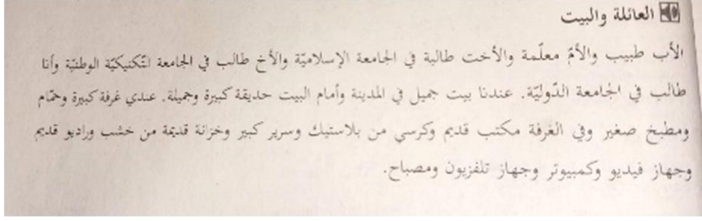 العائلة والبيت
الأب طبيب والأمّ معلّمة والأخت طالبة في الجامعة الإسلاميّة والأخ طالب في الجامعة التّكنيكيّة الوطنيّة وأنا
طالب في الجامعة الدّوليّة. عندنا بيت جميل في المدينة وأمام البيت حديقة كبيرة وجميلة. عندي غرفة كبيرة وحمّام
ومطبخ صغير وفي الغرفة مكتب قديم وكرسي من بلاستيك وسرير كبير وخزانة قديمة من خشب وراديو قديم
وجهاز فيديو وكمبيوتر وجهاز تلفزيون ومصباح.